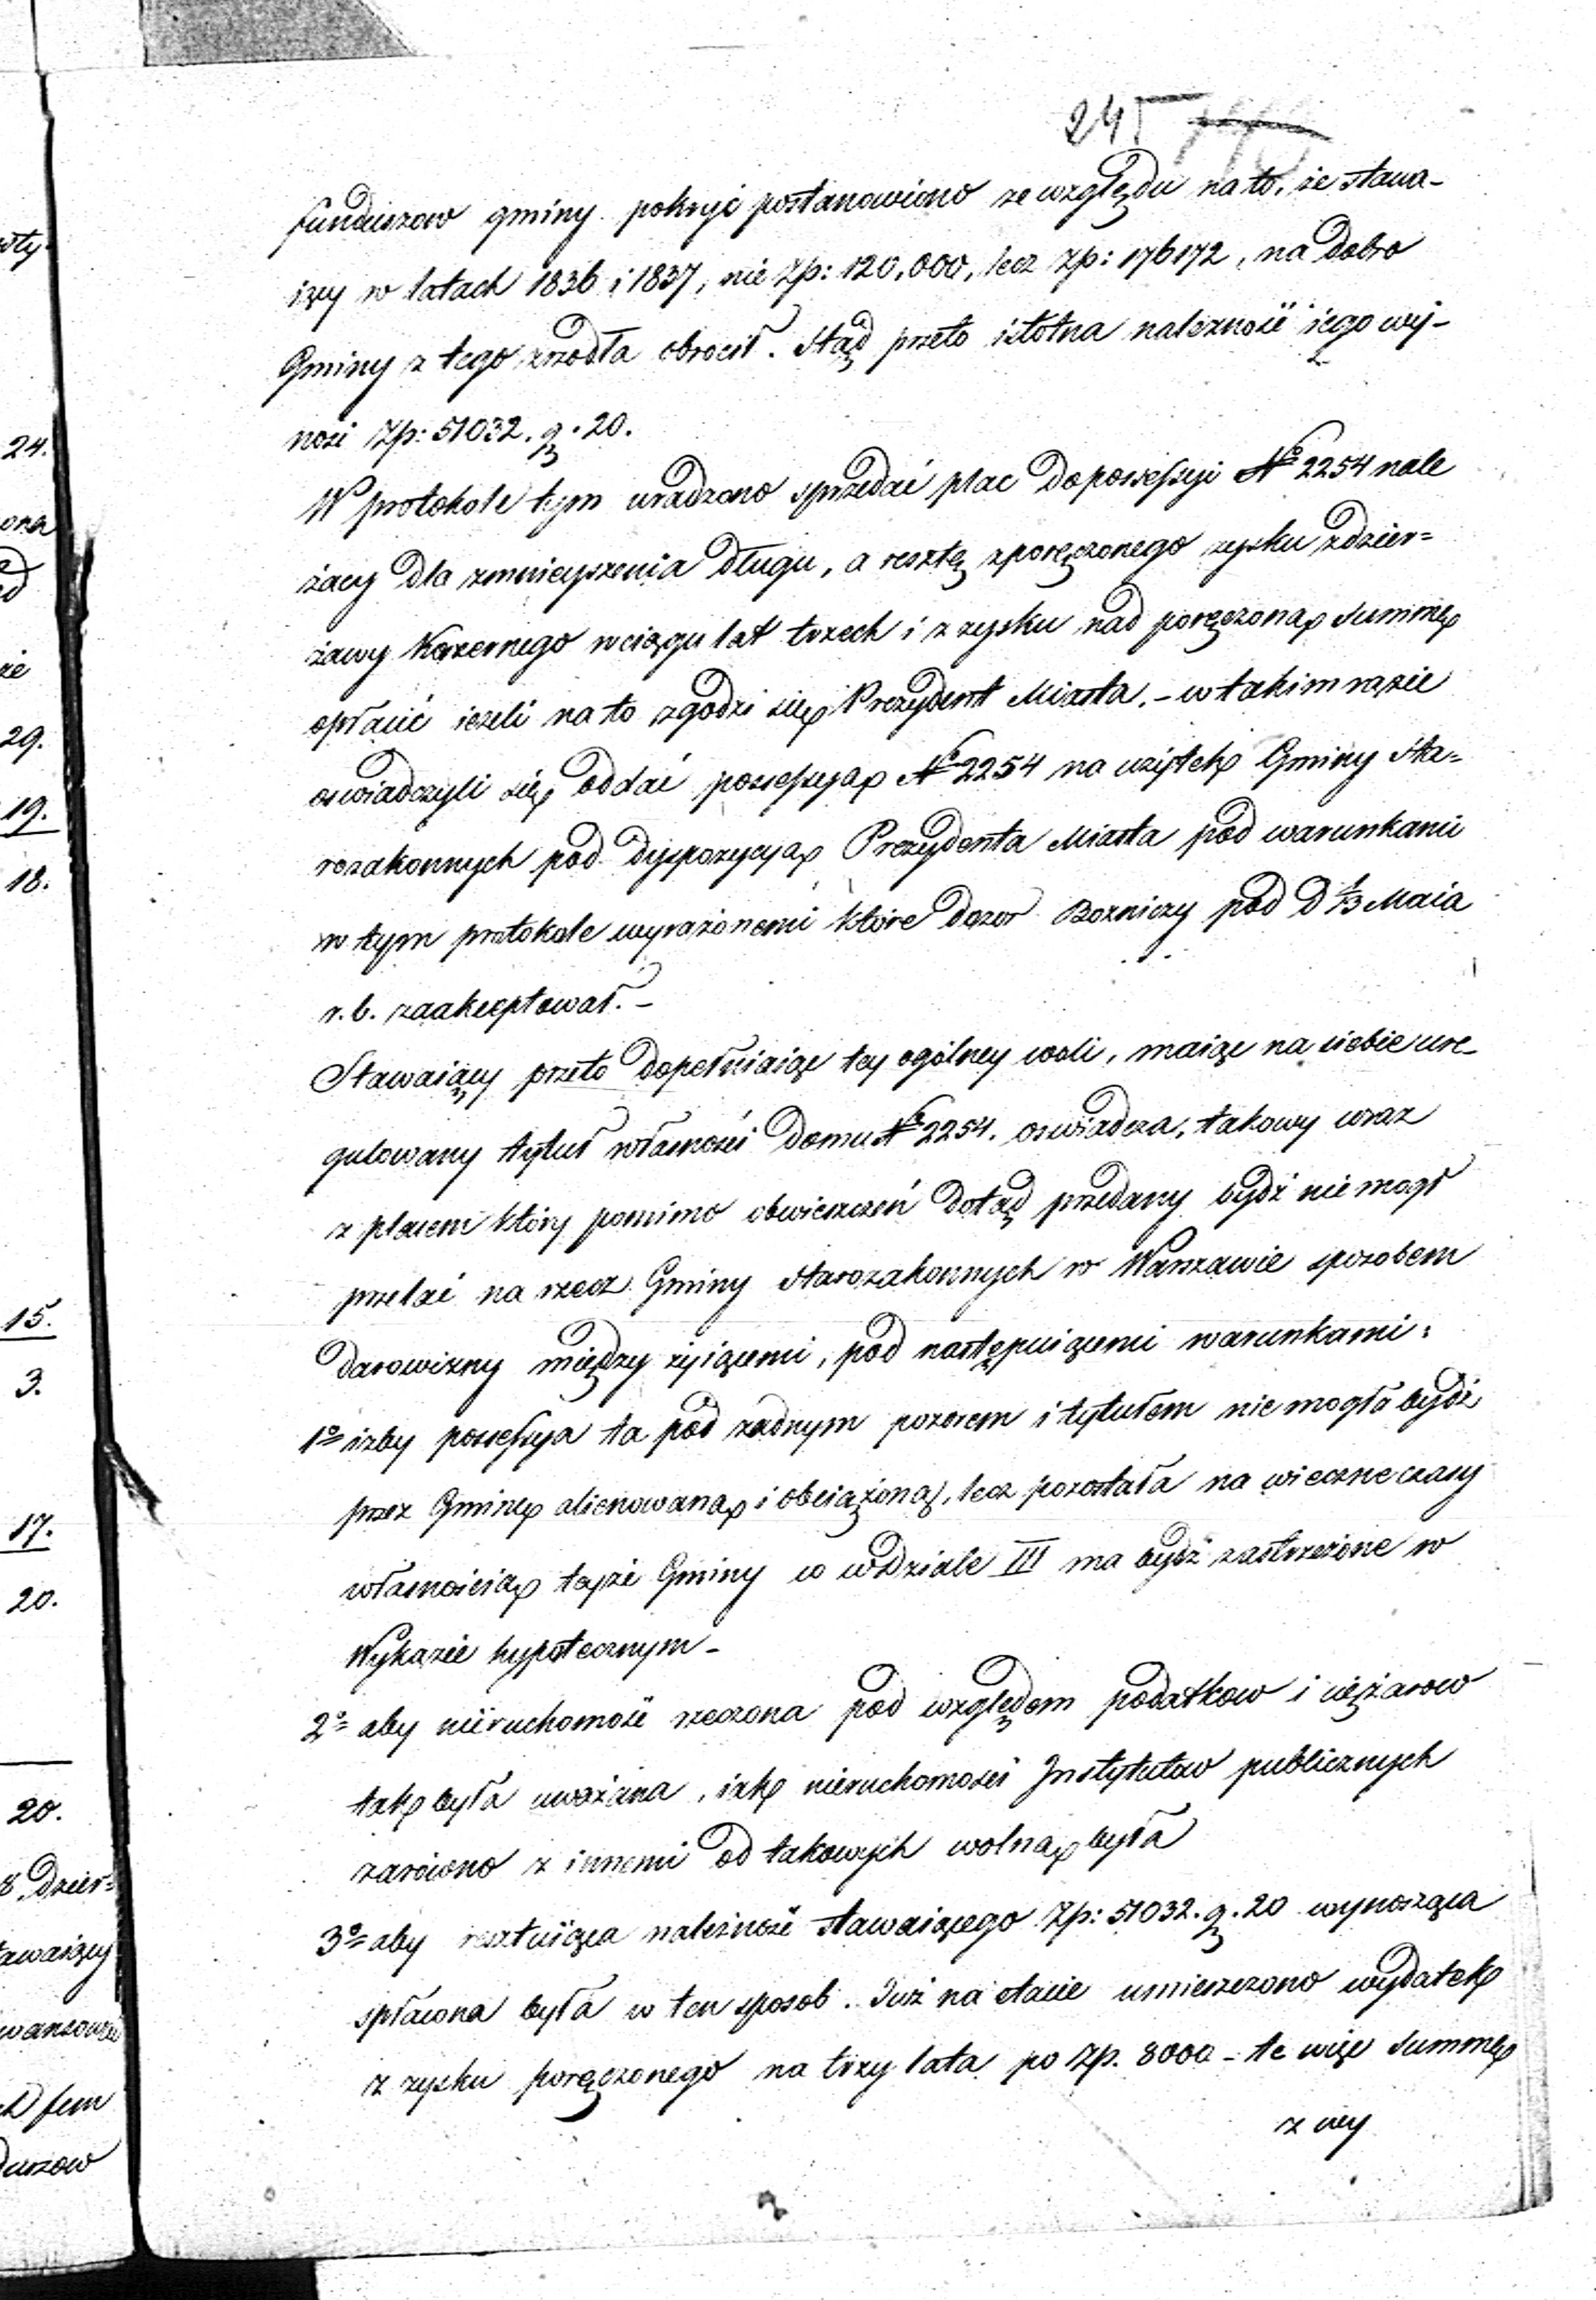 245
funduszow gminy pokryć postanowiono ze względu na to, że stawa-
iący w latach 1836 i 1837, nie Zp: 120,000, lecz Zp: 176172, na dobro
Gminy z tego zrzodła obrocił. Stąd przeto istotna należność iego wy-
nosi Zp: 51032. g. 20.
W protokole tym uradzono sprzedać plac do possessyi № 2254 nale
żący dla zmnieyszenia długu, a resztę z poręczonego zysku z dzier=
żawy Koszernego w ciągu lat trzech i z zysku nad poręczoną Summę
opłacić ieżeli na to zgodzi się Prezydent Miasta. - w takim razie
oswiadczyli się oddać possessyą № 2254 na użytek Gminy Sta=
rozakonnych pod dyspozycyą Prezydenta Miasta pod warunkami
w tym protokole wyrażonemi które dozor Bozniczy pod D 1/13 Maia
r. b. zaakceptował. -
Stawaiący przeto dopełniaiąc tey ogólney woli, maiąc na siebie ure-
gulowany tytuł własności domu № 2254. oswiadcza, takowy wraz
z placem który pomimo obwieszczeń dotąd przedany bydź nie mogł
przelać na rzecz Gminy Starozakonnych w Warszawie sposobem
darowizny między żyiącemi, pod następuiącemi warunkami:
1º iżby possessya ta pod żadnym pozorem i tytułem nie mogła bydź
przez Gminę alienowaną i obciążoną, lecz pozostała na wieczne czasy
własnością teyże Gminy co w dziale III ma bydź zastrzeżone w
Wykazie hypotecznym -
2º aby nieruchomość rzeczona pod względem podatkow i ciężarow
tak była uważana, iak nieruchomości Instytutow publicznych
zarowno z innemi od takowych wolną była
3º aby resztuiąca należność stawaiącego Zp: 51032. g. 20 wynosząca
spłacona była w ten sposob. Już na etacie umieszczono wydatek
z zysku poręczonego na trzy lata po Zp. 8000 - te więc Summę
z ney
24.
29.
19.
18.
15.
3.
17.
20.
20.